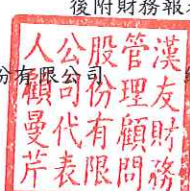 後附財務報
份有限公司
漢友財務
管理顧問
股份有限
公司代表
人顧曼芹